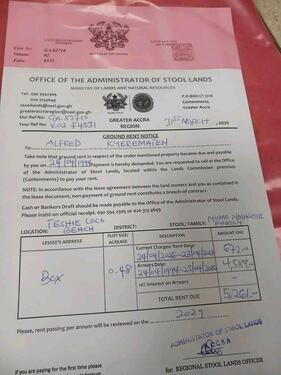 LANDS COMMISSION
Case No: GA.82710
Volume 02
Folio 4331
REPUBLIC OF GHANA
OFFICE OF THE ADMINISTRATOR OF STOOL LANDS
MINISTRY OF LANDS AND NATURAL RESOURCES
Tel: 030
Our Ref No: GA.82710
Your Ref No: V.02 F4331
GREATER ACCRA
REGION
P.O.BOX CT
Cantonments,
Greater Accra
31ST MARCH, 2026
GROUND RENT NOTICE
To ALFRED KYEREMATEN
Take note that ground rent in respect of the under mentioned property became due and payable
by you on payment is hereby demanded. You are requested to call at the Office
of the Administrator of Stool Lands, located within the Lands Commission premises
(Cantonments) to pay your rent.
NOTE: In accordance with the lease agreement between the land owners and you as contained in
the lease document, non-payment of ground rent constitutes a breach of contract.
Cash or Bankers Draft should be made payable to the Office of the Administrator of Stool Lands.
Please insist on official receipt.
LOCATION: TESHIE COCO BEACH
DISTRICT:
STOOL / FAMILY: FAMILY
LESSEE'S ADDRESS
PLOT SIZE: ACREAGE
DESCRIPTION
AMOUNT (GH¢)
Box
0.48
Current Charges/ Rent Date:
672.00
Arrears Date:
4,589.00
Interest on Arrears
TOTAL RENT DUE
5,261.00
Please, rent passing per annum will be reviewed on the 2027
ADMINISTRATOR OF STOOL LANDS
ACCRA
If you are paying for the first time please
for: REGIONAL STOOL LANDS OFFICER